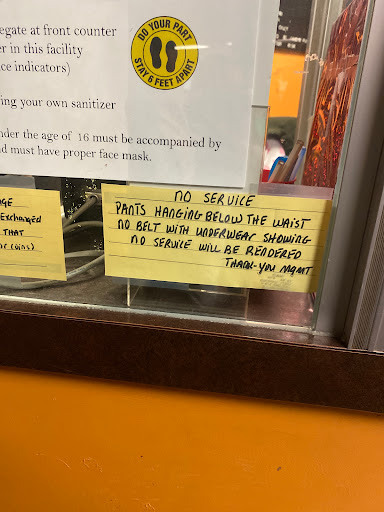 egate at front counter
er in this facility
ce indicators)
DO YOUR PART
STAY 6 FEET APART
ing your own sanitizer
nder the age of 16 must be accompanied by
d must have proper face mask.
GE
Exchanged
THAT
or coins)
NO SERVICE
PANTS HANGING BELOW THE WAIST
NO BELT WITH UNDERWEAR SHOWING
NO SERVICE WILL BE RENDERED
THANK-YOU MGMT